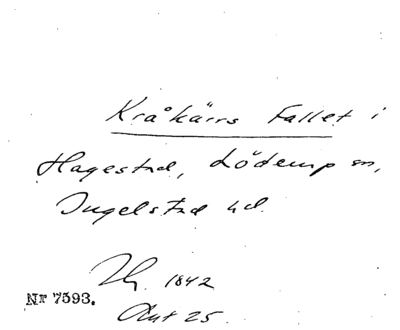 Kråkärrs Fallet i
Hagestad, Löderup sn,
Ingelstad hd.
1842
Nr 7593.
Akt 25.